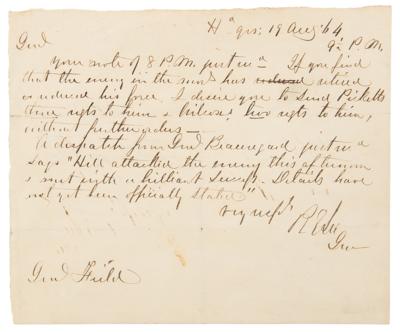 Hd qrs: 19 Aug '64
9½ P.M.
Genl
Your note of 8 P.M. just recd. If you find
that the enemy in the morng has reduced retired
or reduced his force I desire you to send Picketts
three regts to him & Wilcoxs two regts to him,
without further orders—
A dispatch from Genl Beauregard just recd
says "Hill attacked the enemy this afternoon
& met with a brilliant success. Details have
not yet been officially stated"
R E Lee
Genl
Genl Field